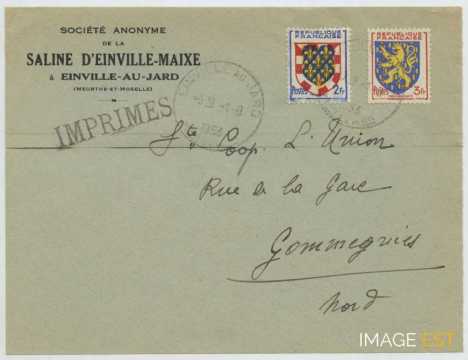 SOCIÉTÉ ANONYME
DE LA
SALINE D'EINVILLE-MAIXE
à EINVILLE-AU-JARD
(MEURTHE-ET-MOSELLE)
IMPRIMES
EINVILLE AU JARD
REPUBLIQUE FRANÇAISE
POSTES 2fr
REPUBLIQUE FRANÇAISE
POSTES 3fr
Sté Coop. L'Union
Rue de la Gare
Gommegnies
Nord
IMAGE EST